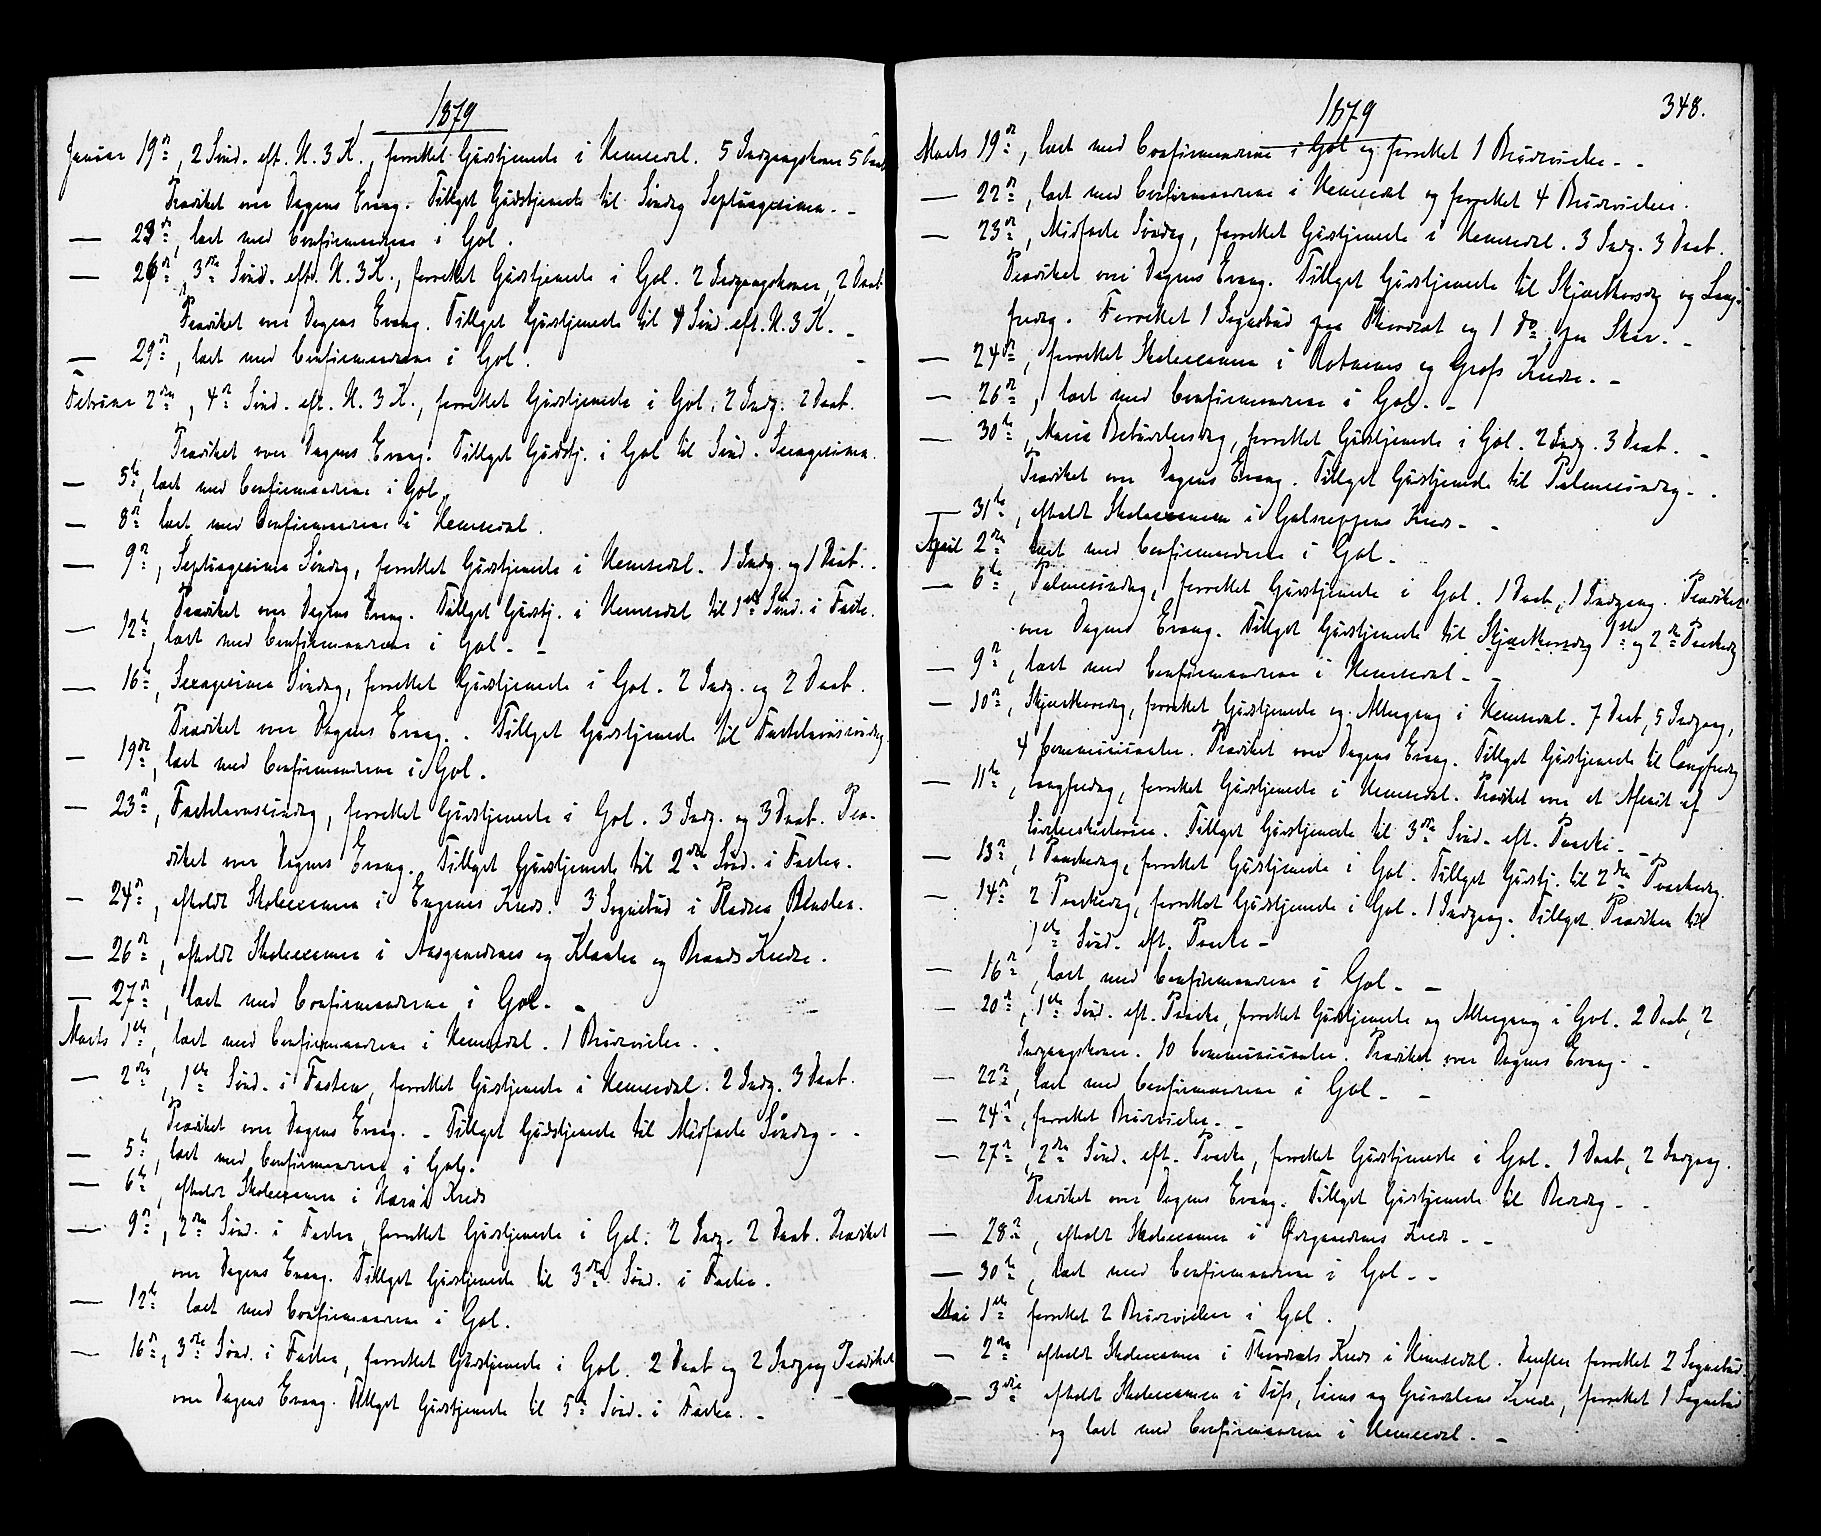 1879
Januar 19de, 2 Sønd. eft. H. 3 K., forrettet Gudstjeneste i Hemsedal. 5 Indgangskoner 5
Prædiket over Dagens Evang. Tillyst Gudstjeneste til Søndag Septuagesima. -
— 23de, læst med Confirmanderne i Gol.
— 26de, 3die Sønd. eft. H. 3 K., forrettet Gudstjeneste i Gol. 2 Indgangskoner, 2 Daab
Prædiket over Dagens Evang. Tillyst Gudstjeneste til 4 Sønd. eft. H. 3 K. -
— 29de, læst med Confirmanderne i Gol. -
Februar 2den, 4de Sønd. eft. H. 3 K., forrettet Gudstjeneste i Gol. 2 Indg. 2 Daab.
Prædiket over Dagens Evang. Tillyst Gudstj. i Gol til Sønd. Sexagesima.
— 5te, læst med Confirmanderne i Gol.
— 8de læst med Confirmanderne i Hemsedal.
— 9de, Septuagesima Søndag, forrettet Gudstjeneste i Hemsedal. 1 Indg. og 1 Daab.
Prædiket over Dagens Evang. Tillyst Gudstj. i Hemsedal til 1ste Sønd. i Faste.
— 12te, læst med Confirmanderne i Gol. -
— 16de, Sexagesima Søndag, forrettet Gudstjeneste i Gol. 2 Indg. og 2 Daab.
Prædiket over Dagens Evang. Tillyst Gudstjeneste til Fastelavnssøndag.
— 19de, læst med Confirmanderne i Gol.
— 23de, Fastelavnssøndag, forrettet Gudstjeneste i Gol. 3 Indg. og 3 Daab. Præ-
diket over Dagens Evang. Tillyst Gudstjeneste til 2den Sønd. i Fasten.
— 24de, afholdt Skoleexamen i Engenes Kreds. 3 Sognebud i
— 26de, afholdt Skoleexamen i og og Kredse.
— 27de, læst med Confirmanderne i Gol. -
Marts 1ste, læst med Confirmanderne i Hemsedal. 1 Brudevielse.
— 2den, 1ste Sønd. i Fasten, forrettet Gudstjeneste i Hemsedal. 2 Indg. 3 Daab.
Prædiket over Dagens Evang. - Tillyst Gudstjeneste til Midfaste Søndag. -
— 5te, læst med Confirmanderne i Gol.
— 6te, afholdt Skoleexamen i Kreds
— 9de, 2den Sønd. i Fasten, forrettet Gudstjeneste i Gol. 2 Indg. 2 Daab. Prædiket
over Dagens Evang. Tillyst Gudstjeneste til 3die Sønd. i Fasten.
— 12te læst med Confirmanderne i Gol.
— 16de, 3die Sønd. i Fasten, forrettet Gudstjeneste i Gol. 2 Daab og 2 Indgang Prædiket
over Dagens Evang. Tillyst Gudstjeneste til 5te Sønd. i Fasten. -
1879
348.
Marts 19de, læst med Confirmanderne i Gol og forrettet 1 Brudevielse. -
— 22de, læst med Confirmanderne i Hemsedal og forrettet 4 Brudevielser.
— 23de, Midfaste Søndag, forrettet Gudstjeneste i Hemsedal. 3 Indg. 3 Daab.
Prædiket over Dagens Evang. Tillyst Gudstjeneste til Skjærthorsdag og Lang-
fredag. Forrettet 1 Sognebud paa og 1 do paa -
— 24de, forrettet Skoleexamen i Rotneims og Kredse. -
— 26de, læst med Confirmanderne i Gol. -
— 30te, Maria Bebudelsesdag, forrettet Gudstjeneste i Gol. 2 Indg. 3 Daab. -
Prædiket over Dagens Evang. Tillyst Gudstjeneste til Palmesøndag. -
— 31te, afholdt Skoleexamen i Golsreppens Kreds. -
April 2den læst med Confirmanderne i Gol. -
— 6te, Palmesøndag, forrettet Gudstjeneste i Gol. 1 Daab, 1 Indgang. Prædiket
over Dagens Evang. Tillyst Gudstjeneste til Skjærthorsdag 1ste og 2den Paaskedag
— 9de, læst med Confirmanderne i Hemsedal. -
— 10de, Skjærthorsdag, forrettet Gudstjeneste og Altergang i Hemsedal. 7 Daab, 5 Indgang,
4 Communicanter. Prædiket over Dagens Evang. Tillyst Gudstjeneste til Langfredag
— 11te, Langfredag, forrettet Gudstjeneste i Hemsedal. Prædiket over et Afsnit af
Lidelseshistorien. Tillyst Gudstjeneste til 3die Sønd. eft. Paaske. -
— 13de, 1 Paaskedag, forrettet Gudstjeneste i Gol. Tillyst Gudstj. til 2den Paaskedag.
— 14de 2 Paaskedag, forrettet Gudstjeneste i Gol. 1 Indgang. Tillyst Prædiken til
1ste Sønd. eft. Paaske -
— 16de, læst med Confirmanderne i Gol. -
— 20de, 1ste Sønd. eft. Paaske, forrettet Gudstjeneste og Altergang i Gol. 2 Daab, 2
Indgangskoner. 10 Communicanter. Prædiket over Dagens Evang. -
— 22de, læst med Confirmanderne i Gol. -
— 24de, forrettet Brudevielse. -
— 27de, 2den Sønd. eft. Paaske, forrettet Gudstjeneste i Gol. 1 Daab, 2 Indgang.
Prædiket over Dagens Evang. Tillyst Gudstjeneste til Bededag. -
— 28de, afholdt Skoleexamen i Kreds. -
— 30te, læst med Confirmanderne i Gol. -
Mai 1ste forrettet 2 Brudevielser i Gol.
— 2den afholdt Skoleexamen i Kreds i Hemsedal. Derefter forrettet 2 Sognebud
— 3die afholdt Skoleexamen i Tufs, Liens og Grøndalens Kredse, forrettet 1 Sognebud
og læst med Confirmanderne i Hemsedal. -